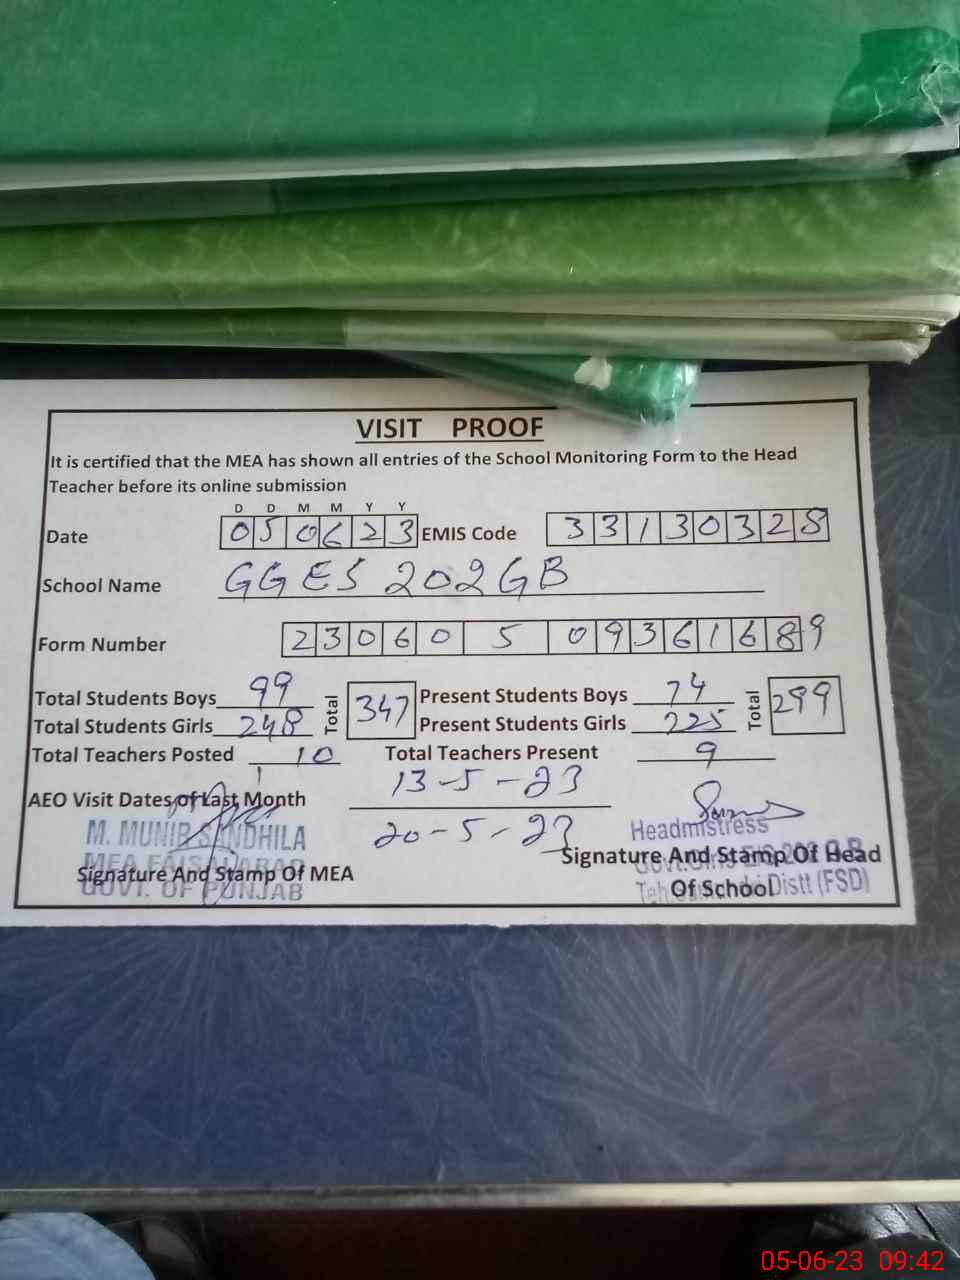 VISIT PROOF
It is certified that the MEA has shown all entries of the School Monitoring Form to the Head
Teacher before its online submission
D D M M Y Y
Date 050623 EMIS Code 33130328
School Name GGES 202GB
Form Number 23060 5 09361689
Total Students Boys 99 Total 347 Present Students Boys 74 Total 299
Total Students Girls 248 Present Students Girls 225
Total Teachers Posted 10 Total Teachers Present 9
AEO Visit Dates of Last Month 13-5-23
20-5-23
M. MUNIR SANDHILA
MEA FAISALABAD
GOVT. OF PUNJAB
Signature And Stamp Of MEA
Headmistress
Govt. Girls
Distt (FSD)
Signature And Stamp Of Head
Of School
05-06-23 09:42